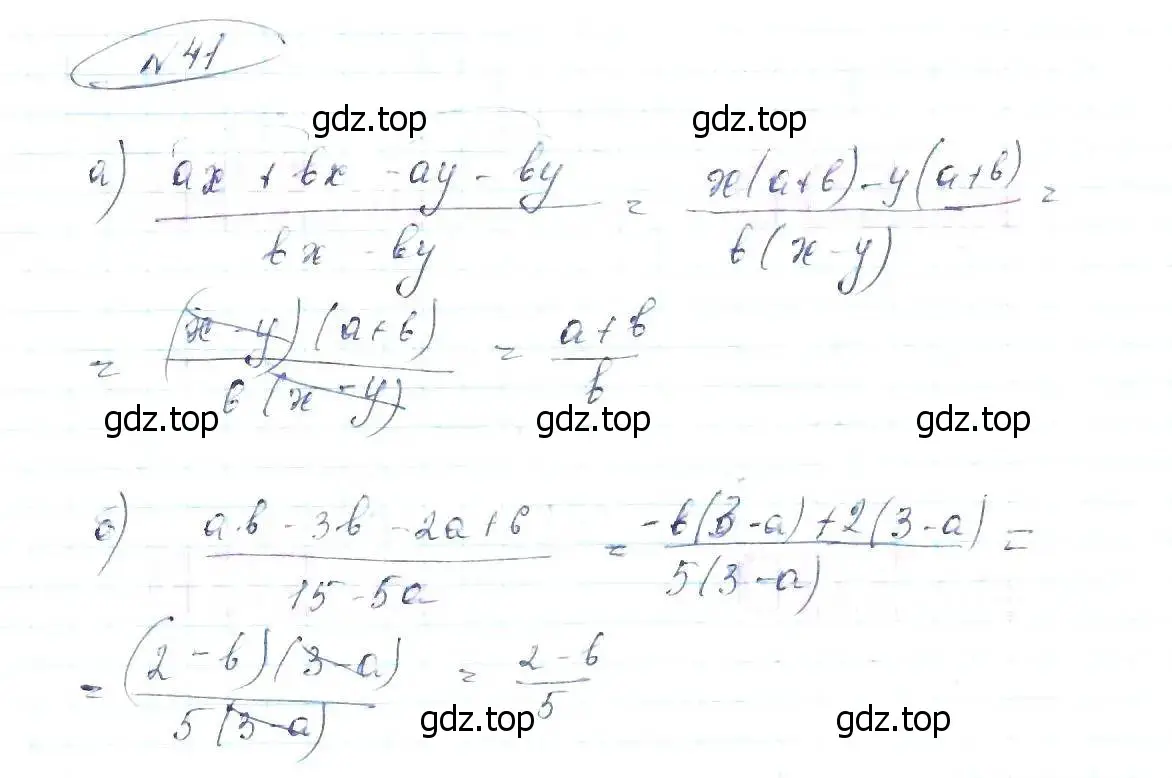 №41
gdz.top gdz.top
а) (ax + bx - ay - by)/(bx - by) = (x(a+b) - y(a+b))/(b(x-y)) =
= ((x-y)(a+b))/(b(x-y)) = (a+b)/b
gdz.top gdz.top gdz.top
б) (ab - 3b - 2a + 6)/(15 - 5a) = (-b(3-a) + 2(3-a))/(5(3-a)) =
= ((2-b)(3-a))/(5(3-a)) = (2-b)/5
gdz.top gdz.top